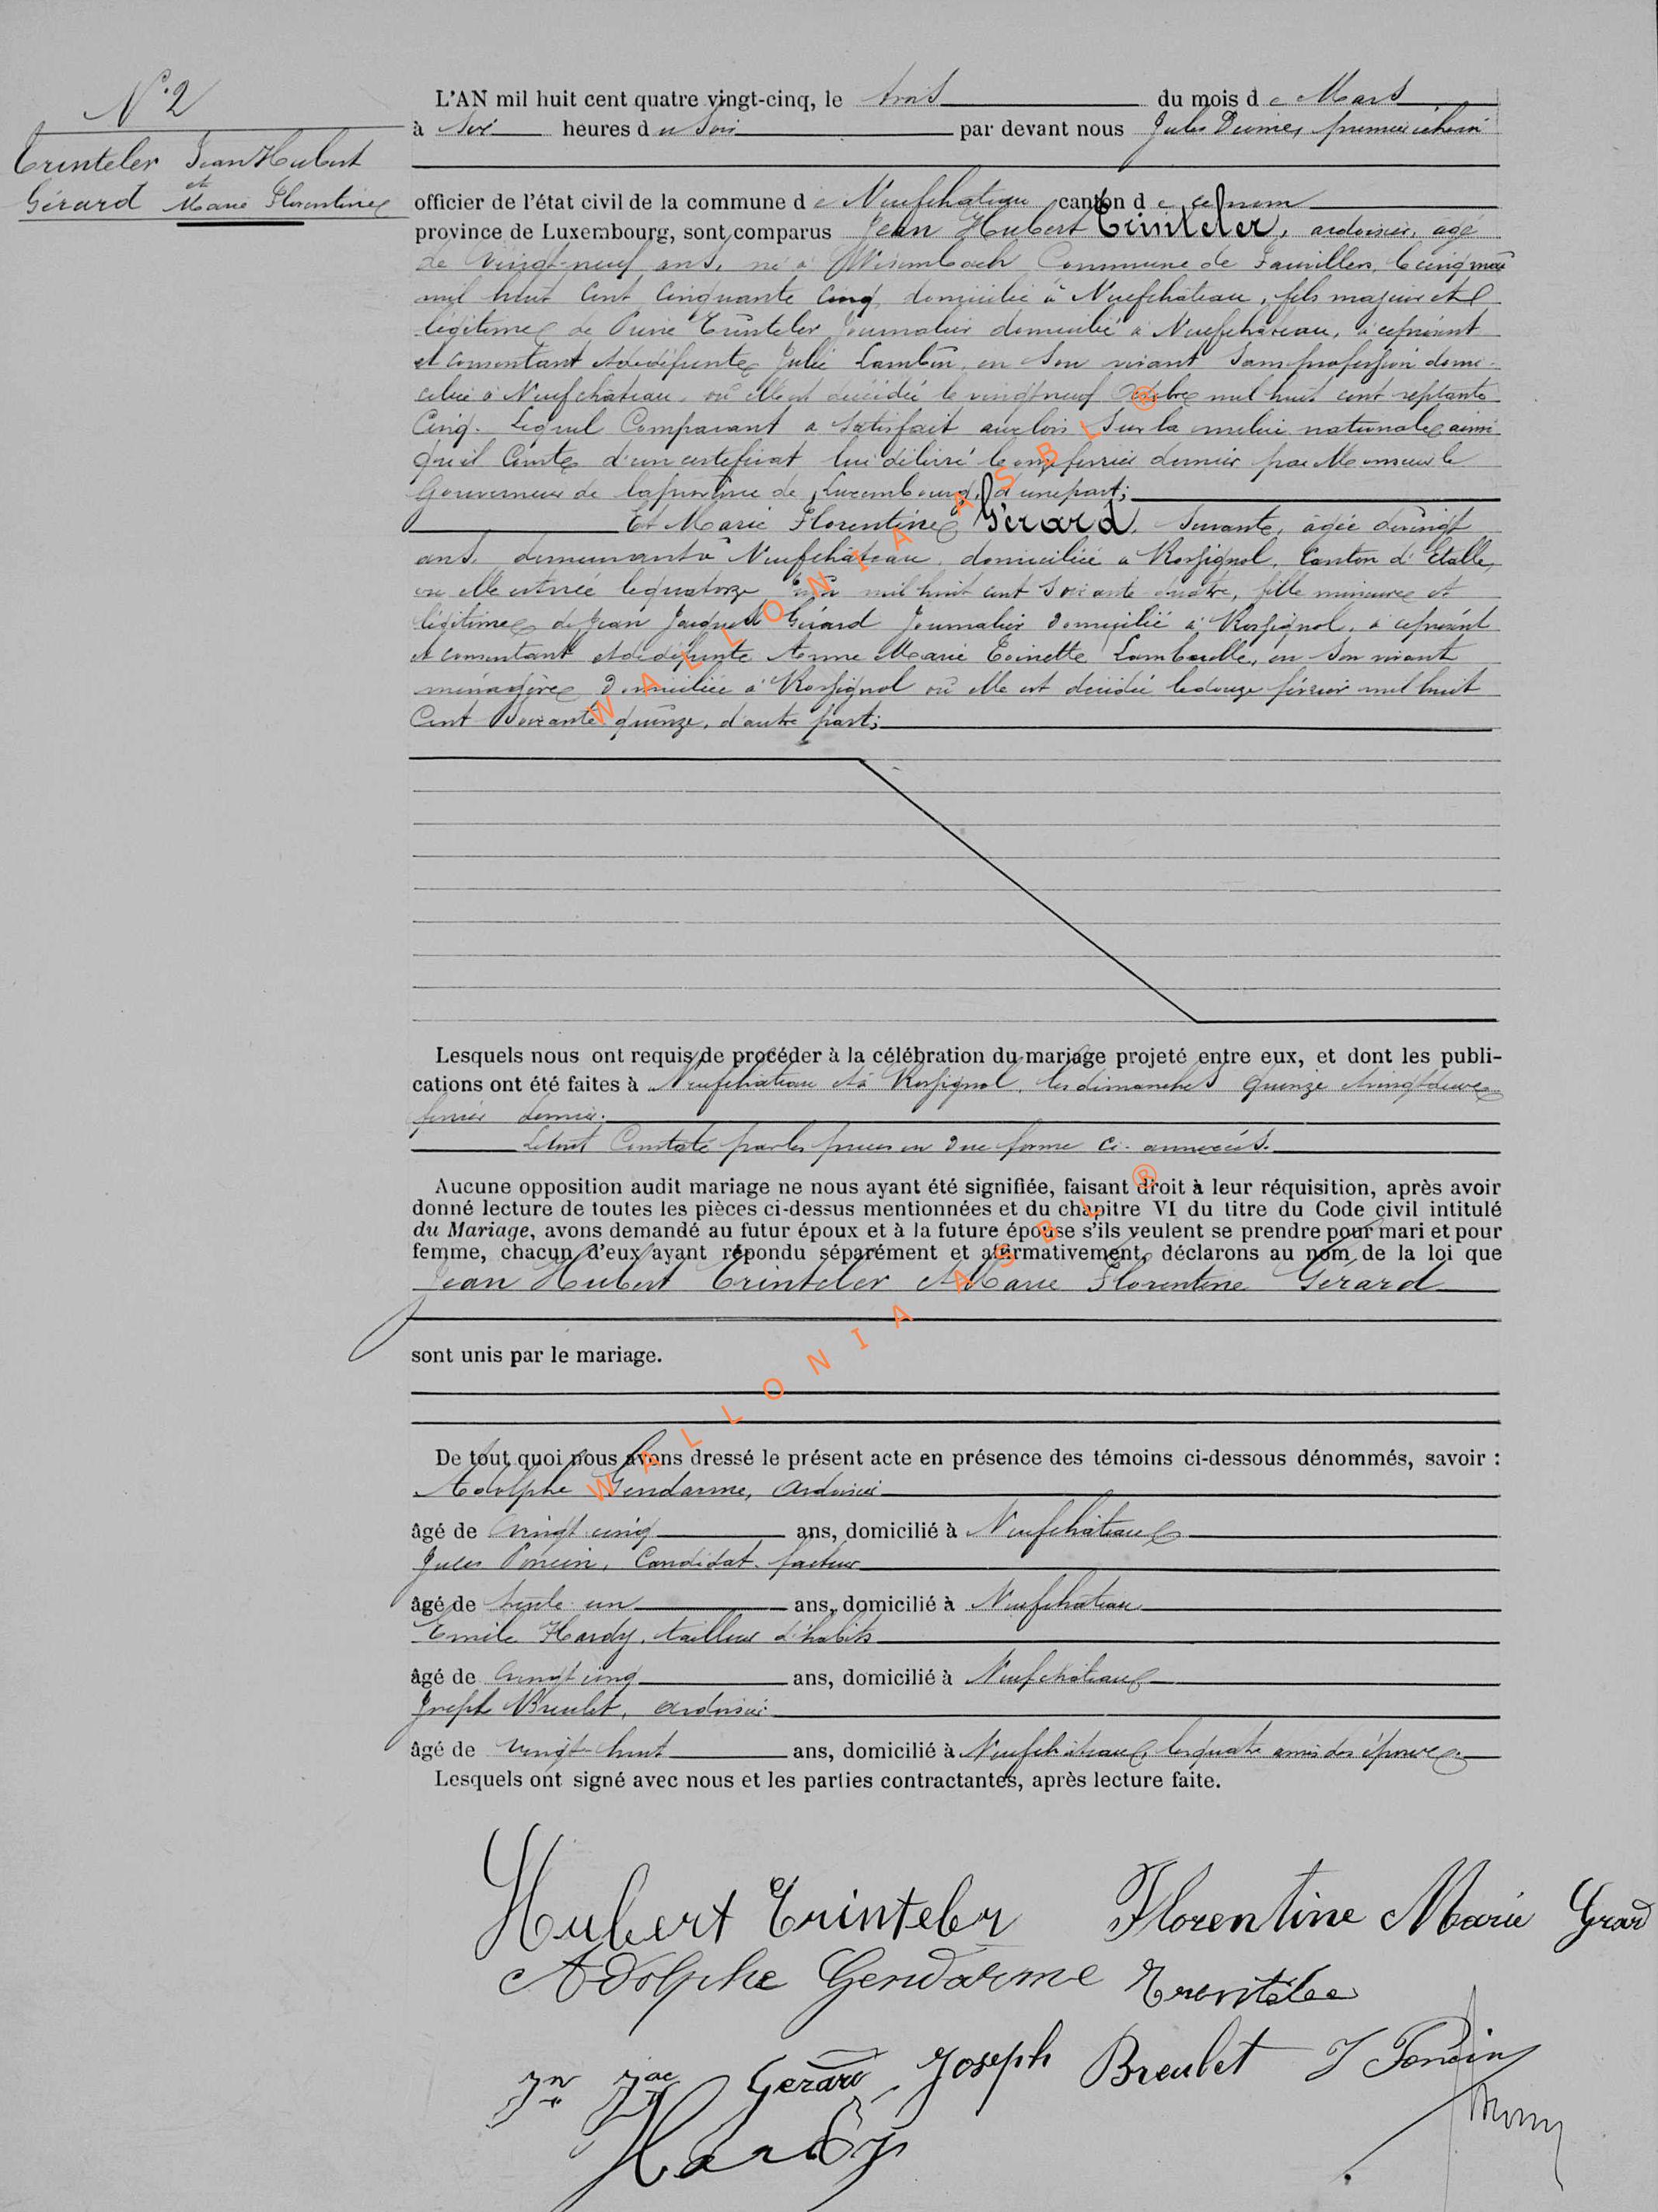 N° 2
Trinteler Jean Hubert
et
Gérard Marie Florentine
L'AN mil huit cent quatre vingt-cinq, le trois du mois de Mars
à six heures du soir par devant nous Jules premier échevin
officier de l'état civil de la commune de Neufchateau canton de ce nom
province de Luxembourg, sont comparus Jean Hubert Trinteler, ardoisier, âgé
de vingt-neuf ans, né à Wisembach Commune de Fauvillers, le cinq mai
mil huit cent cinquante cinq, domicilié à Neufchâteau, fils majeur et
légitime de Pierre Trinteler Journalier domicilié à Neufchâteau, à ce présent
et consentant et de défunte Julie Lambin, en son vivant sans profession domi-
ciliée à Neufchâteau, où elle est décédée le vingt neuf Octobre mil huit cent septante
Cinq. Lequel Comparant a satisfait aux lois sur la milice nationale ainsi
qu'il Conste d'un certificat lui délivré le onze février dernier par Monsieur le
Gouverneur de la province de Luxembourg, d'une part;
Et Marie Florentine Gérard, Servante, âgée de vingt
ans, demeurant à Neufchâteau, domiciliée à Rossignol, Canton d'Etalle,
où elle est née le quatorze mil huit cent soixante quatre, fille mineure et
légitime de Jean Jacques Gérard Journalier domicilié à Rossignol, à ce présent
et consentant et de défunte Anne Marie Toinette Lambrelle, en son vivant
ménagère domiciliée à Rossignol où elle est décédée le douze février mil huit
Cent soixante quinze, d'autre part;
Lesquels nous ont requis de procéder à la célébration du mariage projeté entre eux, et dont les publi-
cations ont été faites à Neufchâteau et à Rossignol, les dimanches quinze et vingt deux
février dernier.
Le tout Constaté par les pièces en due forme ci-annexées.
Aucune opposition audit mariage ne nous ayant été signifiée, faisant droit à leur réquisition, après avoir
donné lecture de toutes les pièces ci-dessus mentionnées et du chapitre VI du titre du Code civil intitulé
du Mariage, avons demandé au futur époux et à la future épouse s'ils veulent se prendre pour mari et pour
femme, chacun d'eux ayant répondu séparément et affirmativement, déclarons au nom de la loi que
Jean Hubert Trinteler et Marie Florentine Gérard
sont unis par le mariage.
De tout quoi nous avons dressé le présent acte en présence des témoins ci-dessous dénommés, savoir :
Adolphe Gendarme, ardoisier
âgé de vingt cinq ans, domicilié à Neufchâteau
Jules Poncin, Candidat facteur
âgé de trente un ans, domicilié à Neufchâteau
Emile Hardy, tailleur d'habits
âgé de vingt cinq ans, domicilié à Neufchâteau
Joseph Breulet, ardoisier
âgé de vingt-huit ans, domicilié à Neufchâteau, les quatre amis des époux.
Lesquels ont signé avec nous et les parties contractantes, après lecture faite.
Hubert Trinteler Florentine Marie Grard
Adolphe Gendarme Trentelee
Jn Jac Gerard Joseph Breulet J Poncin
Hardy
WALLONIA ASBL ®
WALLONIA ASBL ®